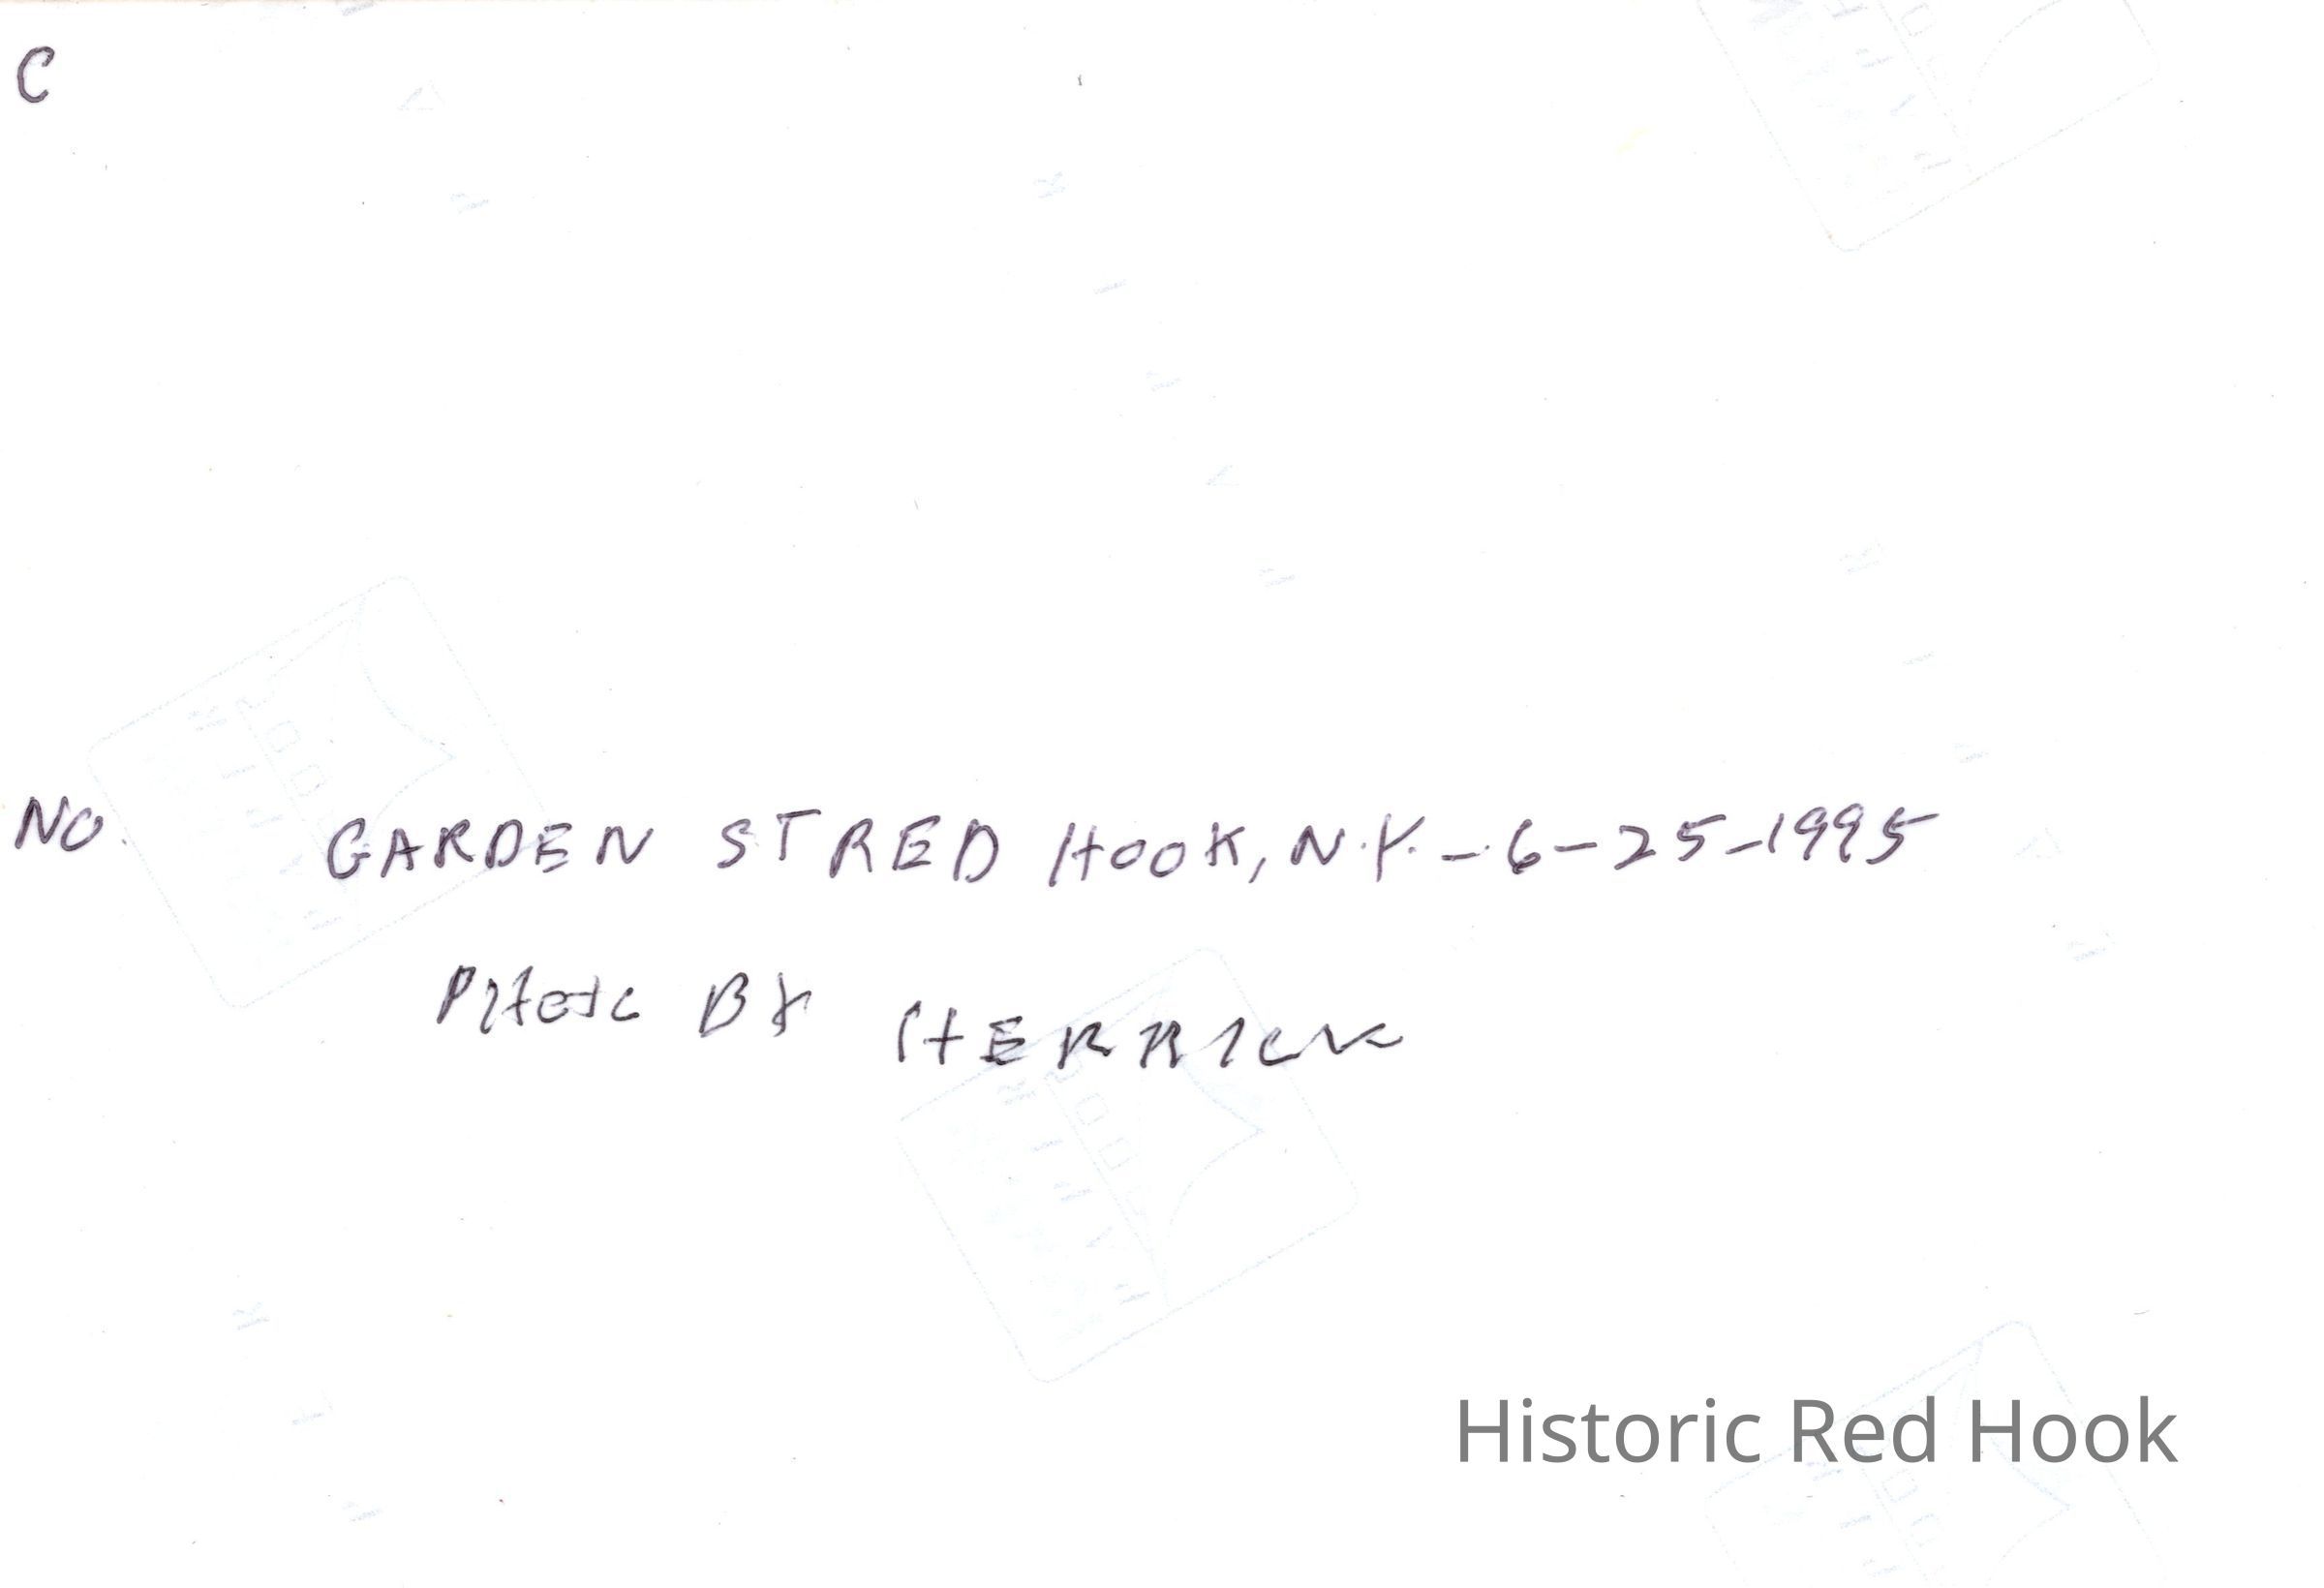 C
NO. GARDEN ST RED HOOK, N.Y. - 6-25-1995
PHOTO BY HERRICK
Historic Red Hook